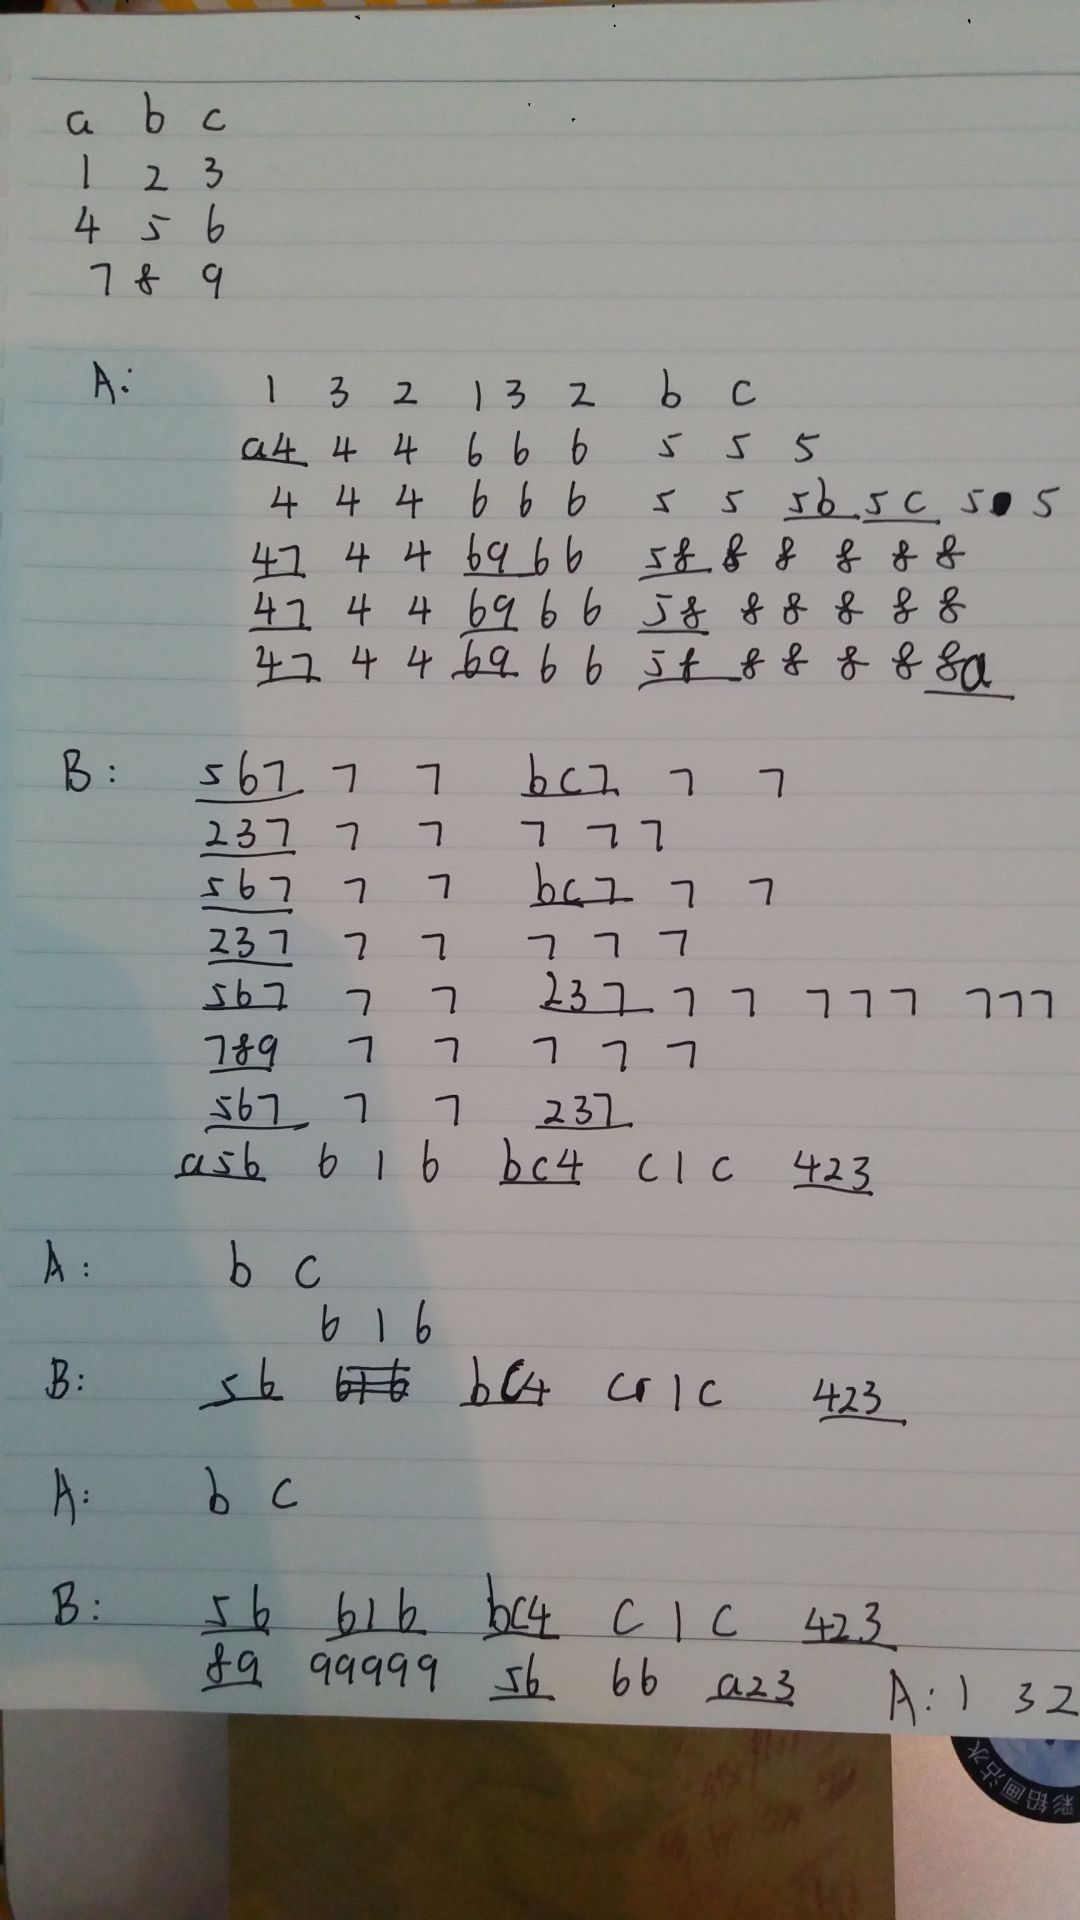 a b c
1 2 3
4 5 6
7 8 9
A: 1 3 2 1 3 2 b c
a4 4 4 6 6 6 5 5 5
4 4 4 6 6 6 5 5 5b 5c 5 5
47 4 4 69 6 6 58 8 8 8 8 8
47 4 4 69 6 6 58 8 8 8 8 8
47 4 4 69 6 6 58 8 8 8 8 8a
B: 567 7 7 bc7 7 7
237 7 7 7 7 7
567 7 7 bc7 7 7
237 7 7 7 7 7
567 7 7 237 7 7 7 7 7 7 7 7
789 7 7 7 7 7
567 7 7 237
a56 6 1 6 bc4 c 1 c 423
A: b c
6 1 6
B: 56 616 bc4 c 1 c 423
A: b c
B: 56 616 bc4 c 1 c 423
89 99999 56 66 a23 A: 1 3 2
彩铅画沾水